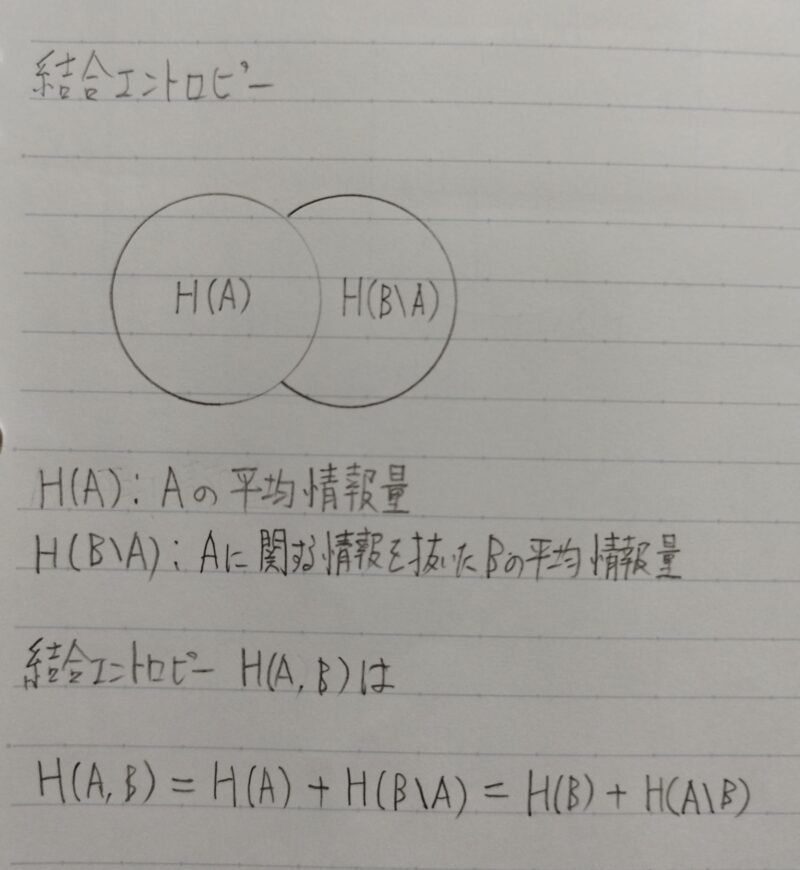 結合エントロピー
H(A) H(B\A)
H(A): Aの平均情報量
H(B\A): Aに関する情報を抜いたBの平均情報量
結合エントロピー H(A,B)は
H(A,B) = H(A) + H(B\A) = H(B) + H(A\B)